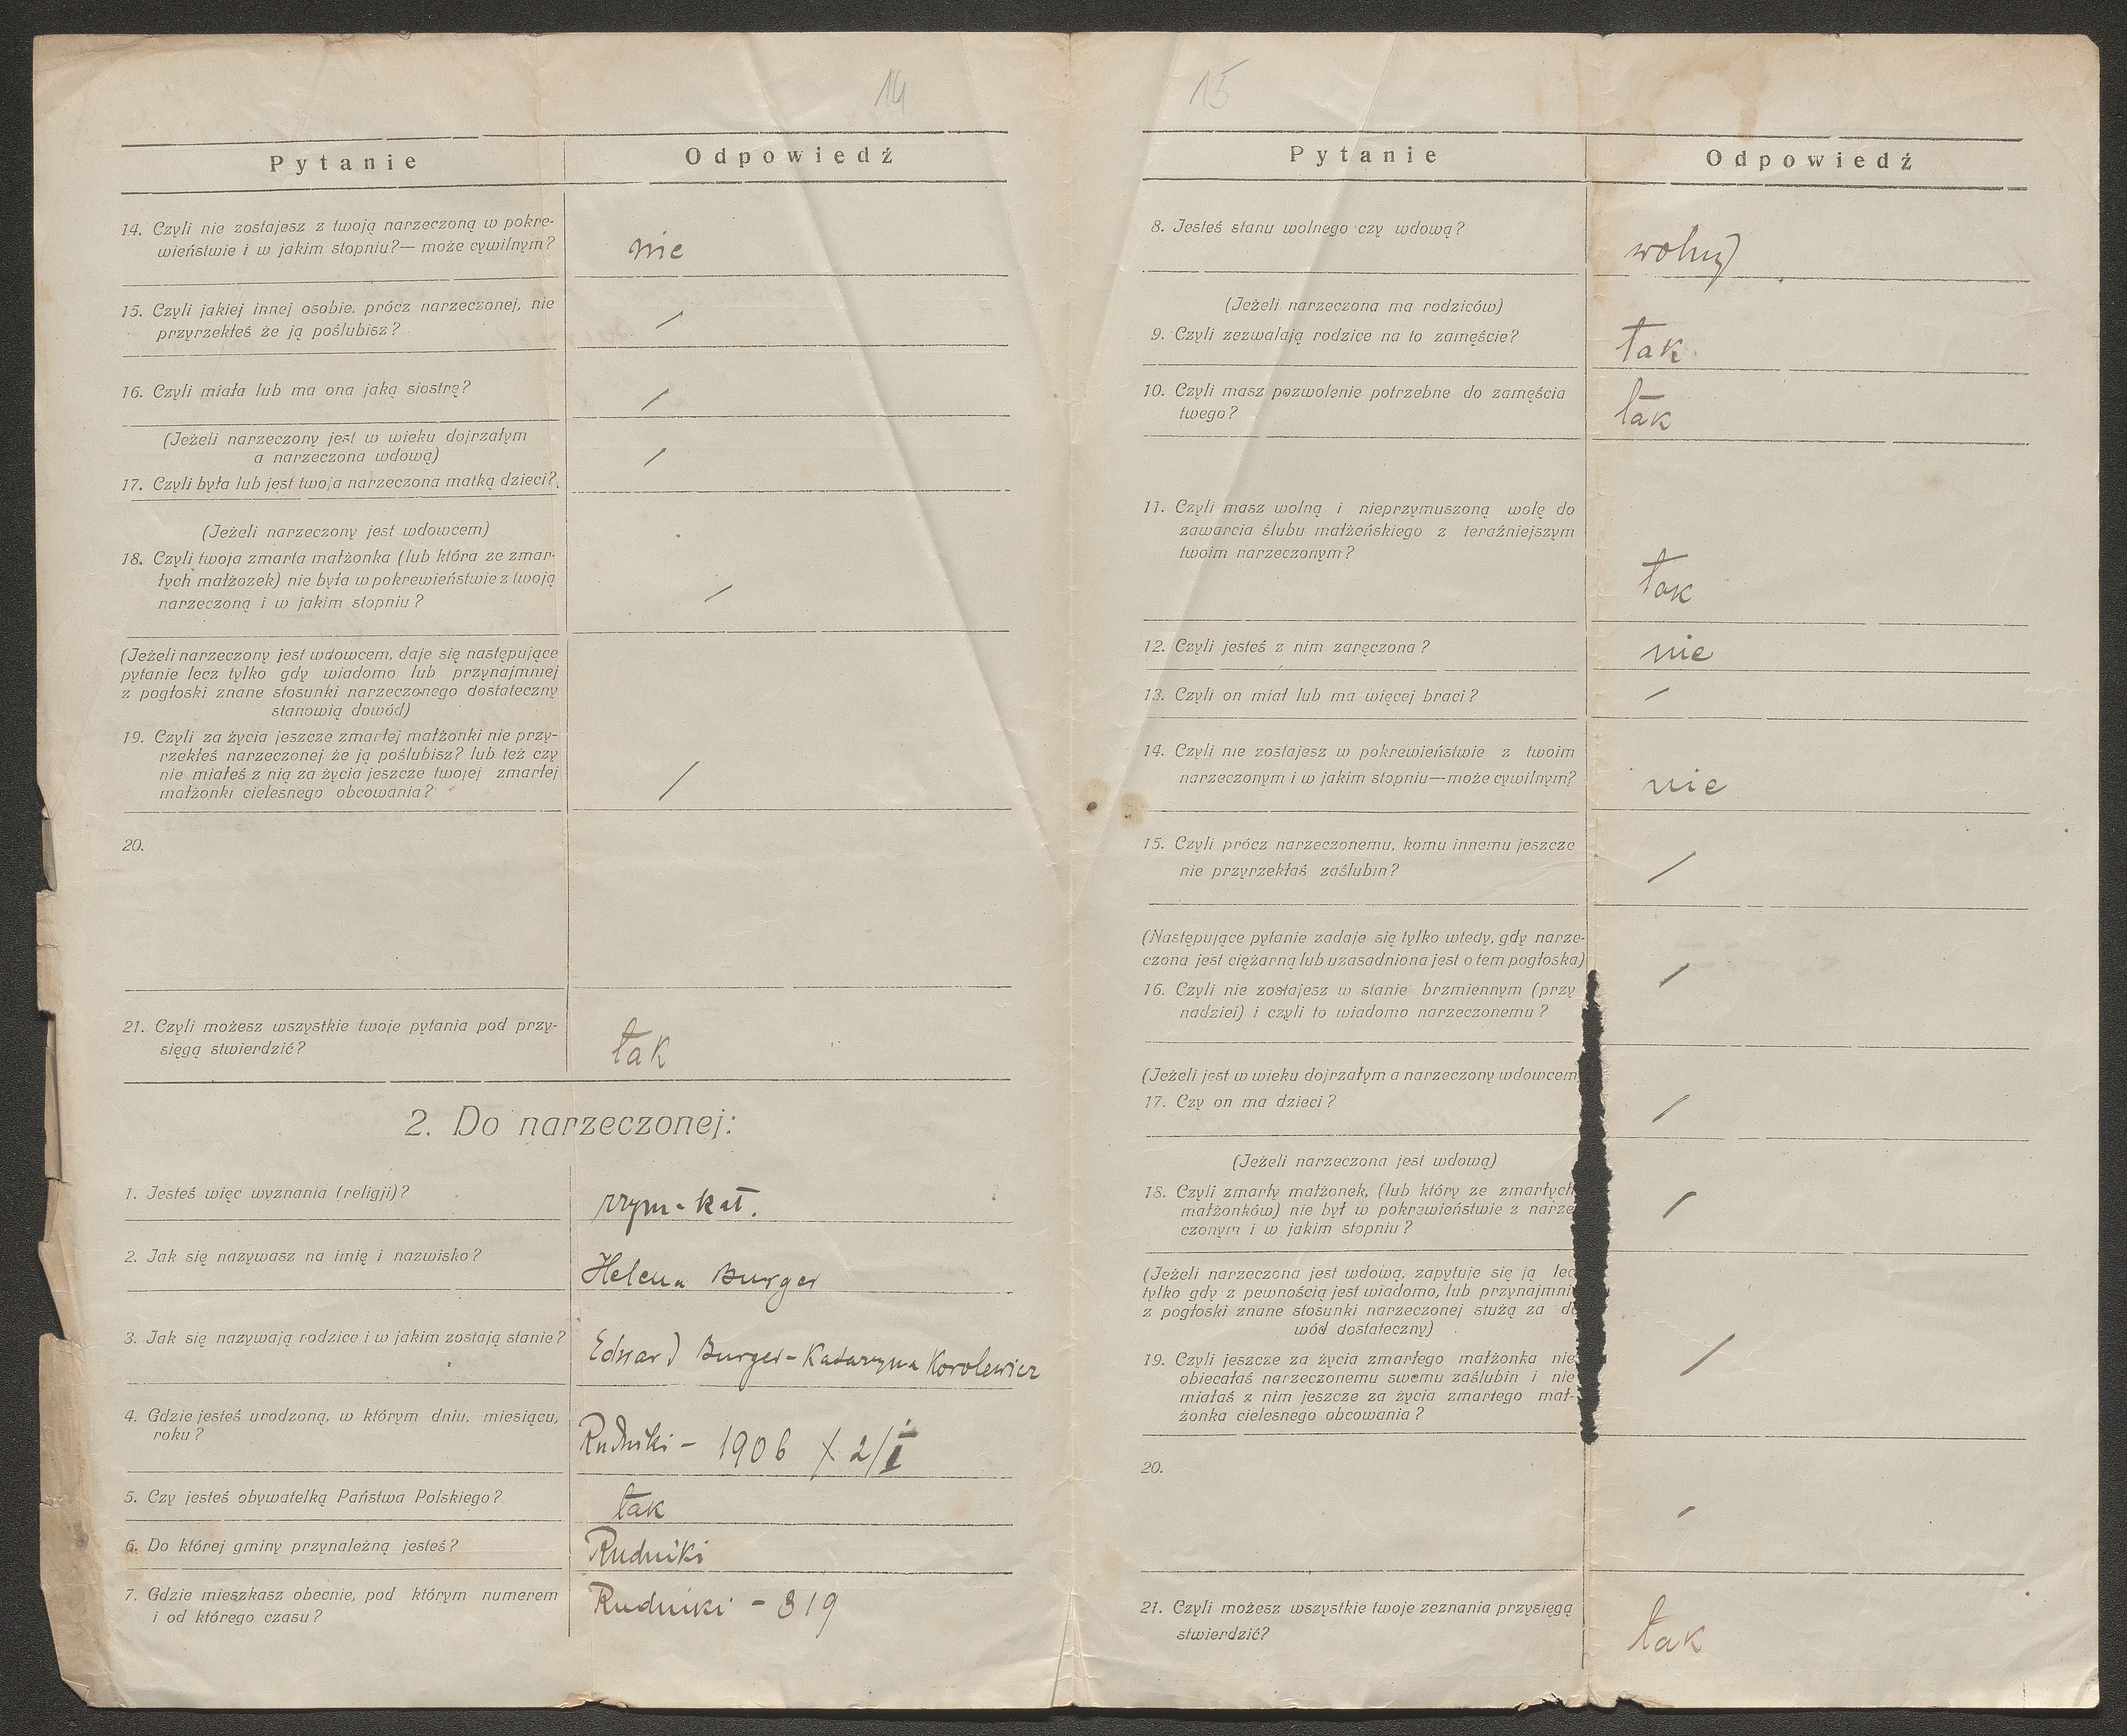 14
Pytanie Odpowiedź
14. Czyli nie zostajesz z twoją narzeczoną w pokre-
wieństwie i w jakim stopniu?— może cywilnym?
nie
15. Czyli jakiej innej osobie, prócz narzeczonej, nie
przyrzekłeś że ją poślubisz?
/
16. Czyli miała lub ma ona jaką siostrę?
/
(Jeżeli narzeczony jest w wieku dojrzałym
a narzeczona wdową)
/
17. Czyli była lub jest twoja narzeczona matką dzieci?
(Jeżeli narzeczony jest wdowcem)
18. Czyli twoja zmarła małżonka (lub która ze zmar-
łych małżozek) nie była w pokrewieństwie z twoją
narzeczoną i w jakim stopniu?
/
(Jeżeli narzeczony jest wdowcem, daje się następujące
pytanie lecz tylko gdy wiadomo lub przynajmniej
z pogłoski znane stosunki narzeczonego dostateczny
stanowią dowód)
19. Czyli za życia jeszcze zmarłej małżonki nie przy-
rzekłeś narzeczonej że ją poślubisz? lub też czy
nie miałeś z nią za życia jeszcze twojej zmarłej
małżonki cielesnego obcowania?
/
20.
21. Czyli możesz wszystkie twoje pytania pod przy-
sięgą stwierdzić?
tak
2. Do narzeczonej:
1. Jesteś więc wyznania (religji)?
rzym-kat.
2. Jak się nazywasz na imię i nazwisko?
Helena Burger
3. Jak się nazywają rodzice i w jakim zostają stanie?
Edward Burger - Katarzyna Korolewicz
4. Gdzie jesteś urodzoną, w którym dniu, miesiącu,
roku?
Rudniki - 1906 X 2/I
5. Czy jesteś obywatelką Państwa Polskiego?
tak
6. Do której gminy przynależną jesteś?
Rudniki
7. Gdzie mieszkasz obecnie, pod którym numerem
i od którego czasu?
Rudniki - 319
15
Pytanie Odpowiedź
8. Jesteś stanu wolnego czy wdową?
wolny
(Jeżeli narzeczona ma rodziców)
9. Czyli zezwalają rodzice na to zamęście?
tak
10. Czyli masz pozwolenie potrzebne do zamęścia
twego?
tak
11. Czyli masz wolną i nieprzymuszoną wolę do
zawarcia ślubu małżeńskiego z teraźniejszym
twoim narzeczonym?
tak
12. Czyli jesteś z nim zaręczona?
nie
13. Czyli on miał lub ma więcej braci?
/
14. Czyli nie zostajesz w pokrewieństwie z twoim
narzeczonym i w jakim stopniu—może cywilnym?
nie
15. Czyli prócz narzeczonemu, komu innemu jeszcze
nie przyrzekłaś zaślubin?
/
(Następujące pytanie zadaje się tylko wtedy, gdy narze-
czona jest ciężarną lub uzasadniona jest o tem pogłoska)
/
16. Czyli nie zostajesz w stanie brzmiennym (przy
nadziei) i czyli to wiadomo narzeczonemu?
(Jeżeli jest w wieku dojrzałym a narzeczony wdowcem
17. Czy on ma dzieci?
/
(Jeżeli narzeczona jest wdową)
18. Czyli zmarły małżonek, (lub który ze zmarłych
małżonków) nie był w pokrewieństwie z narze
czonym i w jakim stopniu?
/
(Jeżeli narzeczona jest wdową, zapytuje się ją lec
tylko gdy z pewnością jest wiadomo, lub przynajmni
z pogłoski znane stosunki narzeczonej stużą za do
wód dostateczny)
19. Czyli jeszcze za życia zmarłego małżonka nie
obiecałaś narzeczonemu swemu zaślubin i nie
miałaś z nim jeszcze za życia zmarłego mał-
żonka cielesnego obcowania?
/
20.
/
21. Czyli możesz wszystkie twoje zeznania przysięgą
stwierdzić?
tak